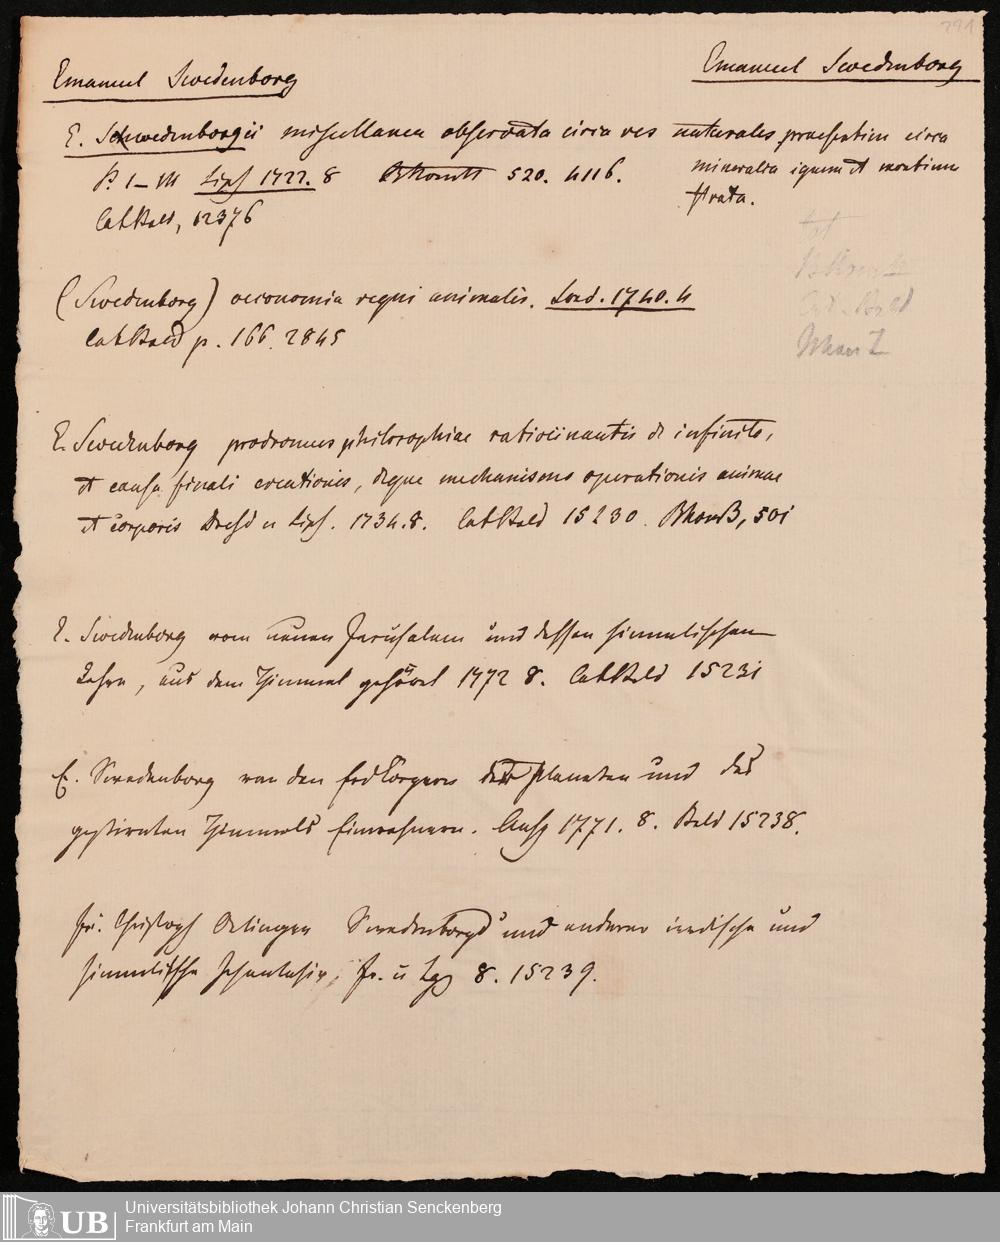 291
Emanuel Swedenborg
Emanuel Swedenborg
E. Schwedenborgii miscellanea observata circa res naturales praesertim circa
mineralia ignem et montium
strata.
P. I–III Lips 1722. 8 520. 4116.
Cat Bald, 12376
(Swedenborg) oeconomia regni animalis. Lond. 1740. 4
Cat Bald p. 166. 2845
E. Swedenborg prodromus philosophiae ratiocinantis de infinito,
et causa finali creationis, deque mechanismo operationis animae
et corporis Dresd u Lips. 1734. 8. Cat Bald 15230. 501
E. Swedenborg vom neuen Jerusalem und dessen himmlischen
Lehre, aus dem Himmel gehöret 1772 8. Cat Bald 15231
E. Swedenborg von den Erdkörpern der Planeten und des
gestirnten Himmels Einwohnern. Ansp 1771. 8. Bald 15238.
Fr. Christoph Oetingers Swedenborgs und anderer irrdische und
himmlische Philosophie, Fr. u Lpz 8. 15239.
UB
Universitätsbibliothek Johann Christian Senckenberg
Frankfurt am Main